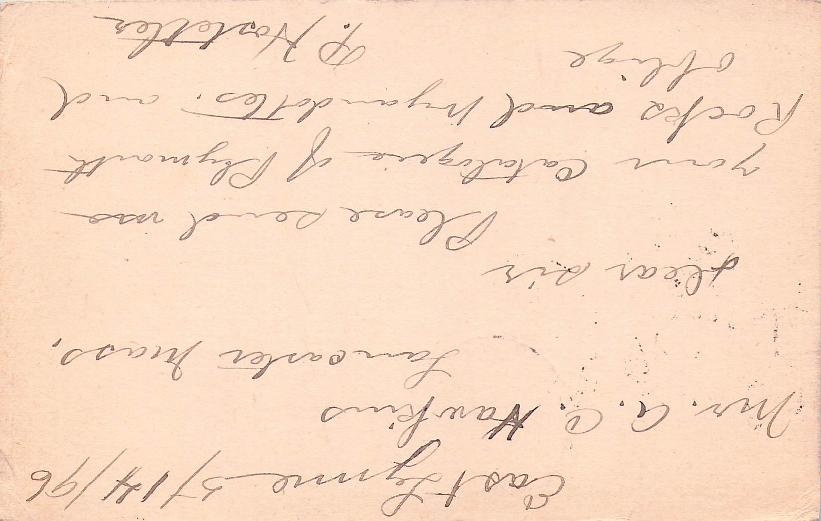 East Lyme 5/14/96
Mr. A. C. Hawkins
Lancaster Mass.
Dear Sir
Please send me
your Catalogue of Plymouth
Rocks and Wyandottes. and
oblige
P. Hostetler